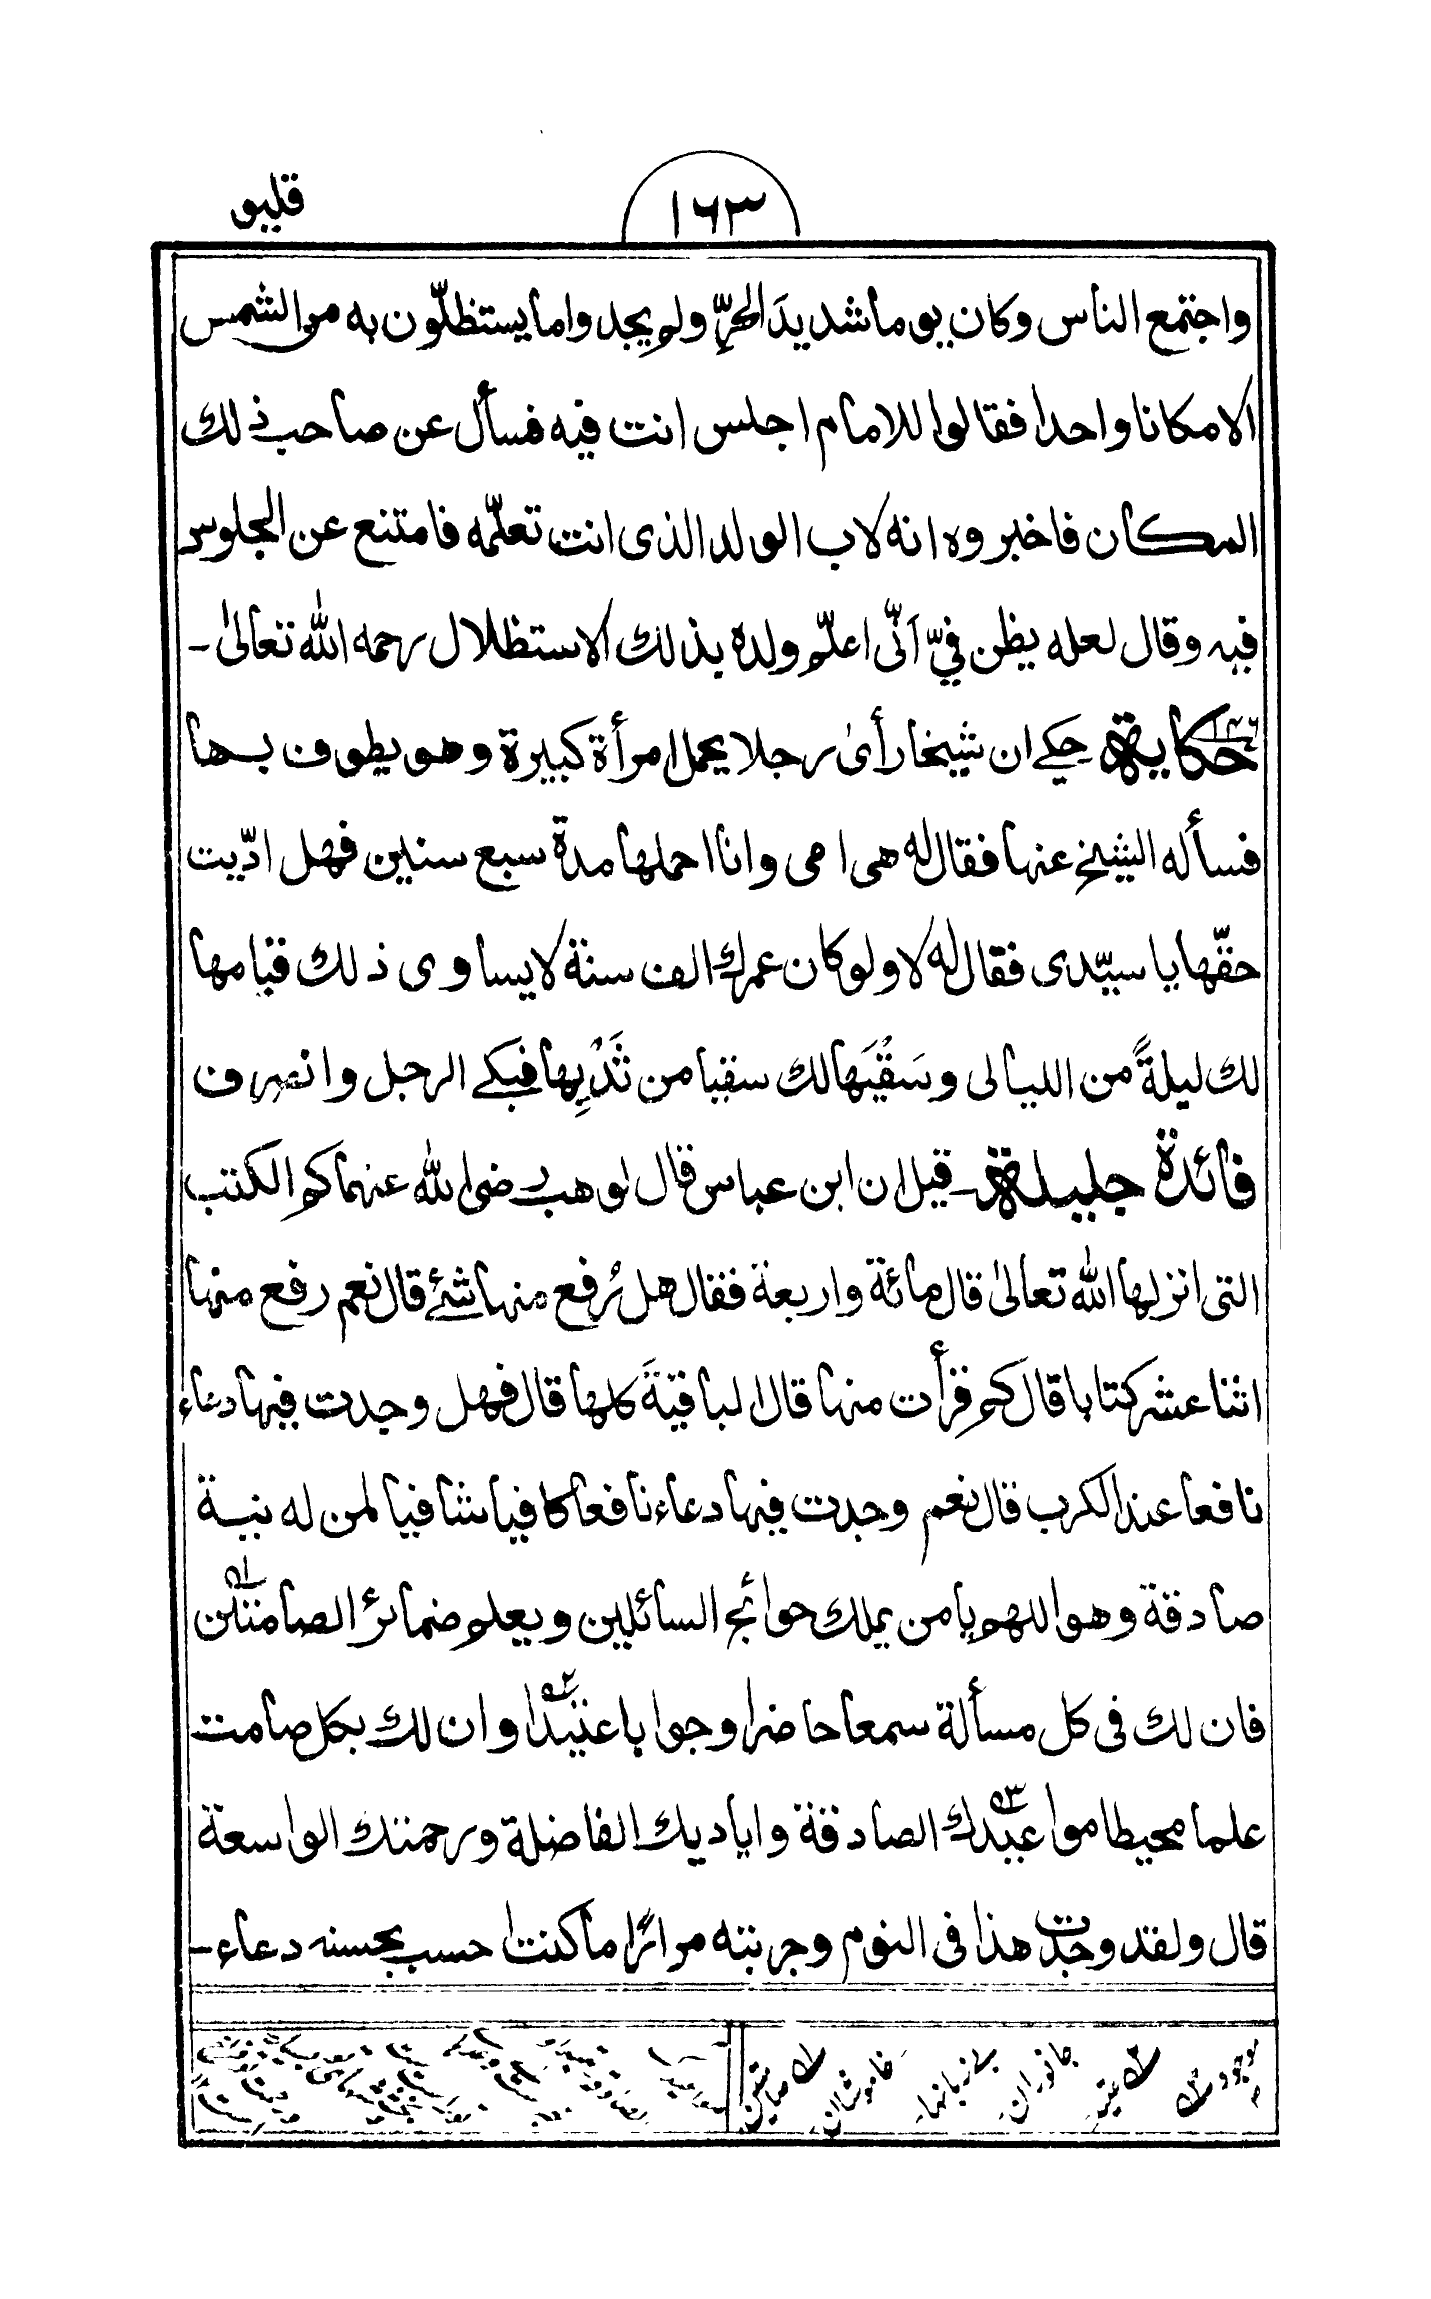 قليو
١٦٣
واجتمع الناس وكان يوما شديدَ الحرِّ ولم يجدوا ما يستظلّون به من الشمس
الا مكانا واحدا فقالوا للامام اجلس انت فيه فسأل عن صاحب ذلك
المكان فاخبروه انه لاب الولد الذى انت تعلّمه فامتنع عن الجلوس
فيه وقال لعله يظن فيّ اَنّى اعلّم ولده بذلك الاستظلال رحمه الله تعالىٰ-
حكاية ١٤٦ حكے ان شيخا رأىٰ رجلا يحمل امرأة كبيرة وهو يطوف بها
فسأله الشيخ عنها فقال له هى امى وانا احملها مدة سبع سنين فهل ادّيت
حقّها يا سيّدى فقال له لا ولو كان عمرك الف سنة لا يساوى ذلك قيامها
لك ليلةً من الليالى وسَقْيَها لك سقيا من ثَدْيِها فبكے الرجل وانصرف
فائدة جليلة- قيل ان ابن عباس قال لوهب رضى الله عنهما كم الكتب
التى انزلها الله تعالىٰ قال مائة واربعة فقال هل رُفع منها شئے قال نعم رفع منها
اثنا عشر كتابا قال كم قرأت منها قال الباقيةَ كلها قال فهل وجدت فيها دعاء
نافعا عند الكرب قال نعم وجدت فيها دعاء نافعا كافيا شافيا لمن له نية
صادقة وهو اللهم يا من يملك حوائج السائلين ويعلم ضمائر الصامتين
فان لك فى كل مسألة سمعا حاضرا وجوابا عتيدا وان لك بكل صامت
علما محيطا مواعيدك الصادقة واياديك الفاضلة ورحمتك الواسعة
قال ولقد وجدت هذا فى النوم وجربته مرارًا ما كنت احسب يحسنه دعاء-